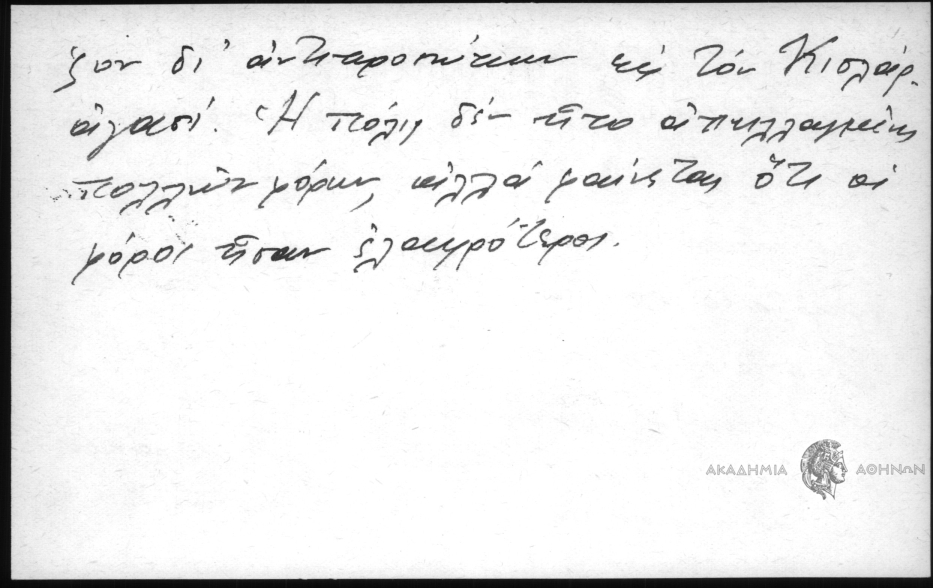 ζον δι' ἀντιπροσώπων εἰς τὸν Κισλάρ-
ἀγασί. Ἡ πόλις δέν ἦτο ἀπηλλαγμένη
πολλῶν φόρων, ἀλλά φαίνεται ὅτι οἱ
φόροι ἦσαν ἐλαφρότεροι.
ΑΚΑΔΗΜΙΑ ΑΘΗΝΩΝ